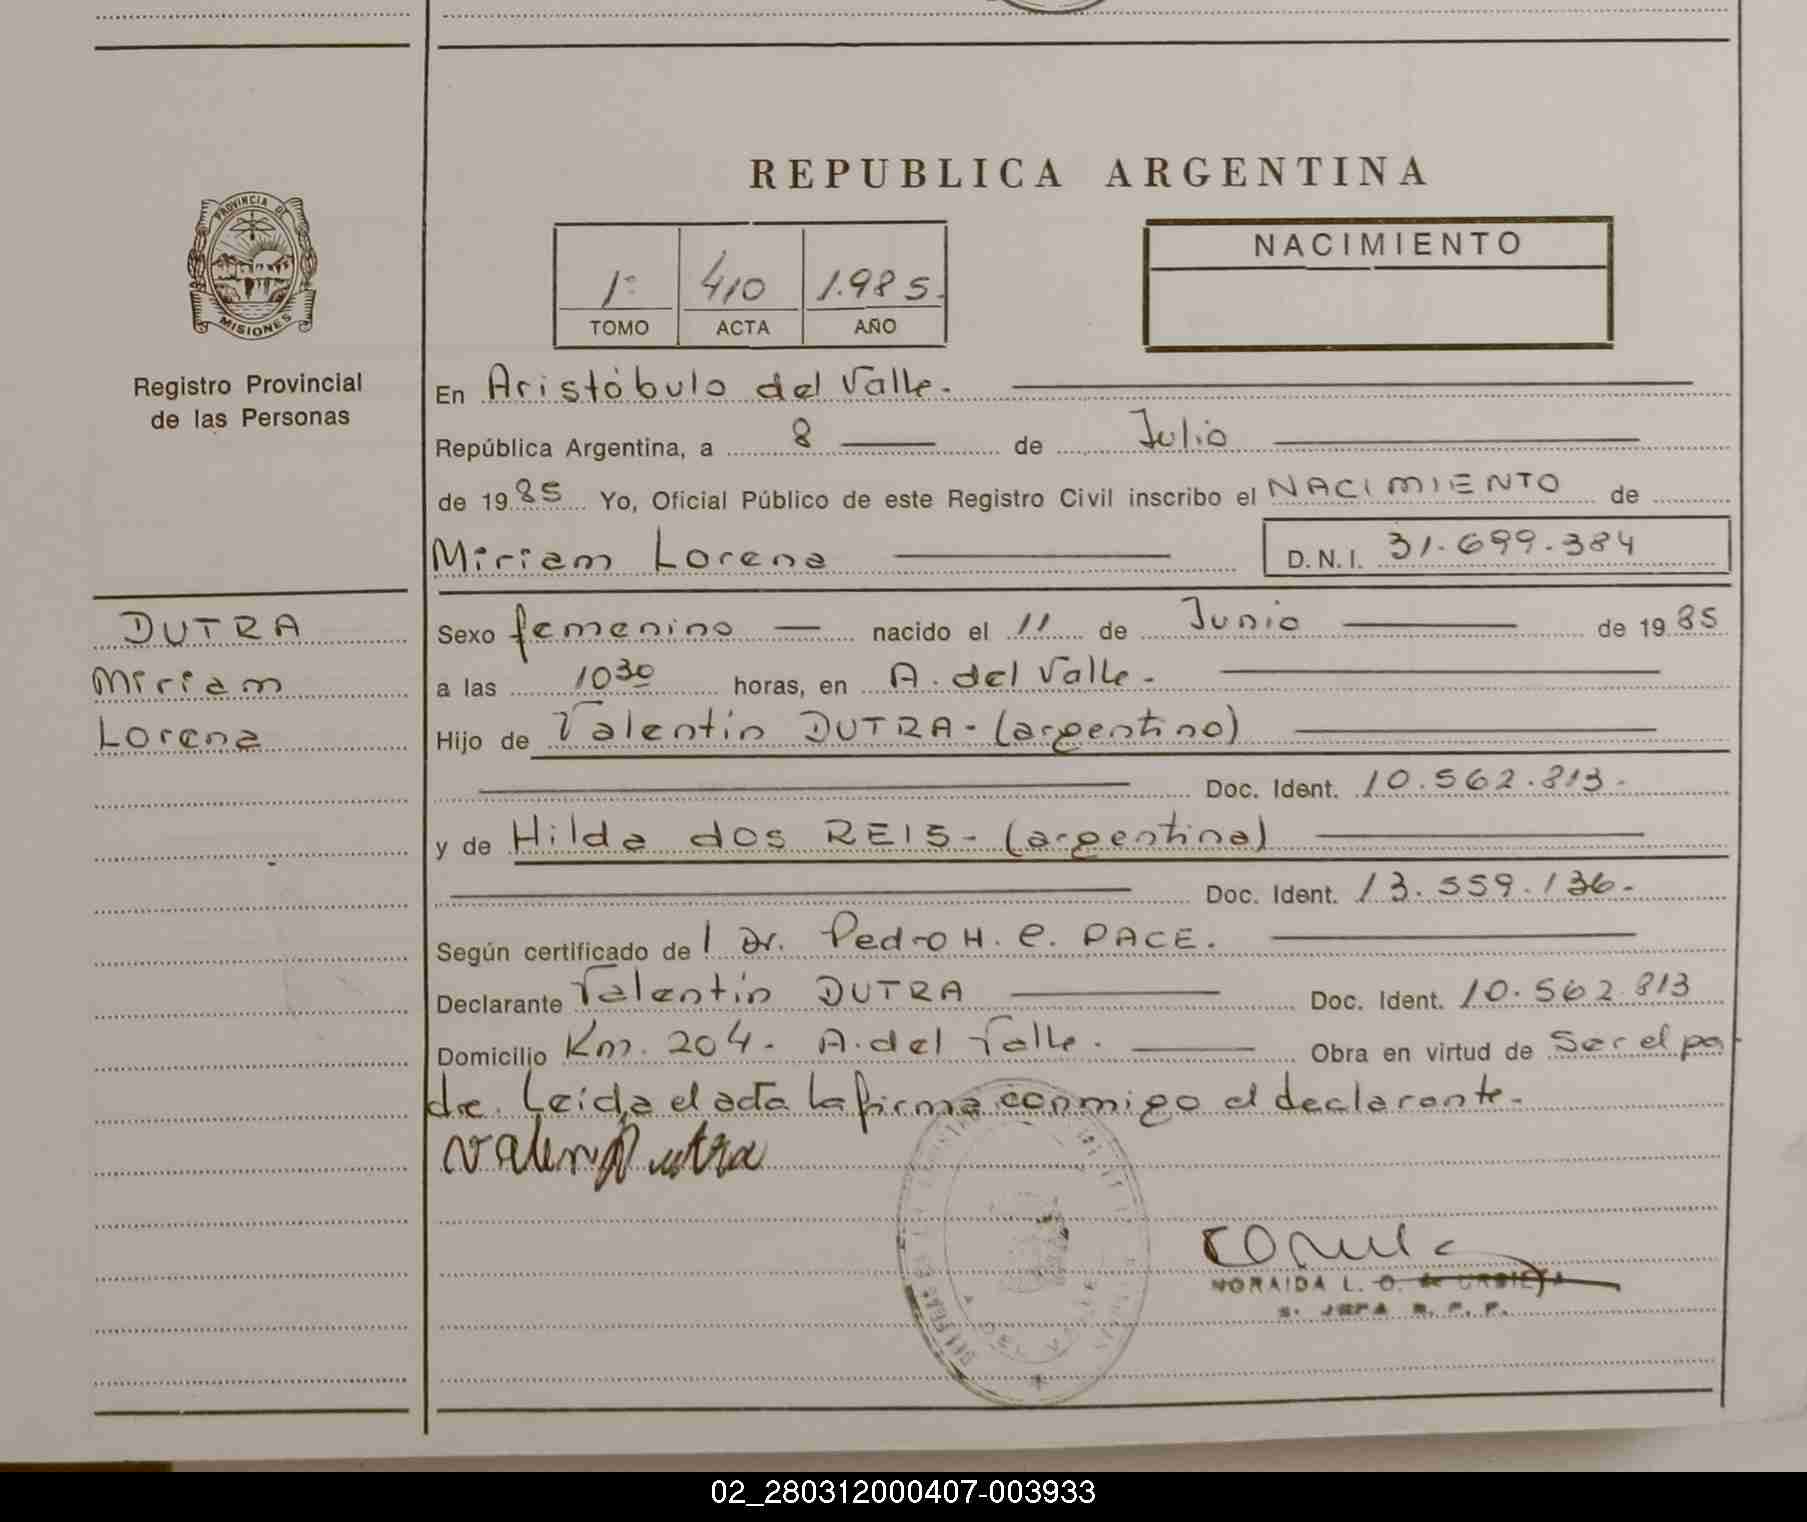 REPUBLICA ARGENTINA
PROVINCIA DE
MISIONES
Registro Provincial
de las Personas
1º 410 1.985.
TOMO ACTA AÑO
NACIMIENTO
En Aristóbulo del Valle.
República Argentina, a 8 de Julio
de 1985 Yo, Oficial Público de este Registro Civil inscribo el NACIMIENTO de
Miriam Lorena D.N.I. 31.699.384
DUTRA
Miriam
Lorena
Sexo femenino nacido el 11 de Junio de 1985
a las 10 30 horas, en A. del Valle.
Hijo de Valentín DUTRA - (argentino)
Doc. Ident. 10.562.813.
y de Hilda dos REIS - (argentina)
Doc. Ident. 13.559.136.
Según certificado del Dr. Pedro H. C. PACE.
Declarante Valentín DUTRA Doc. Ident. 10.562.813
Domicilio Km. 204. A. del Valle. Obra en virtud de Ser el pa-
dre. Leida el acta la firma conmigo el declarante.
Valen Dutra
NORAIDA L. O. de URBIETA
S. JEFA R. P. P.
A. DEL VALLE
02_280312000407-003933